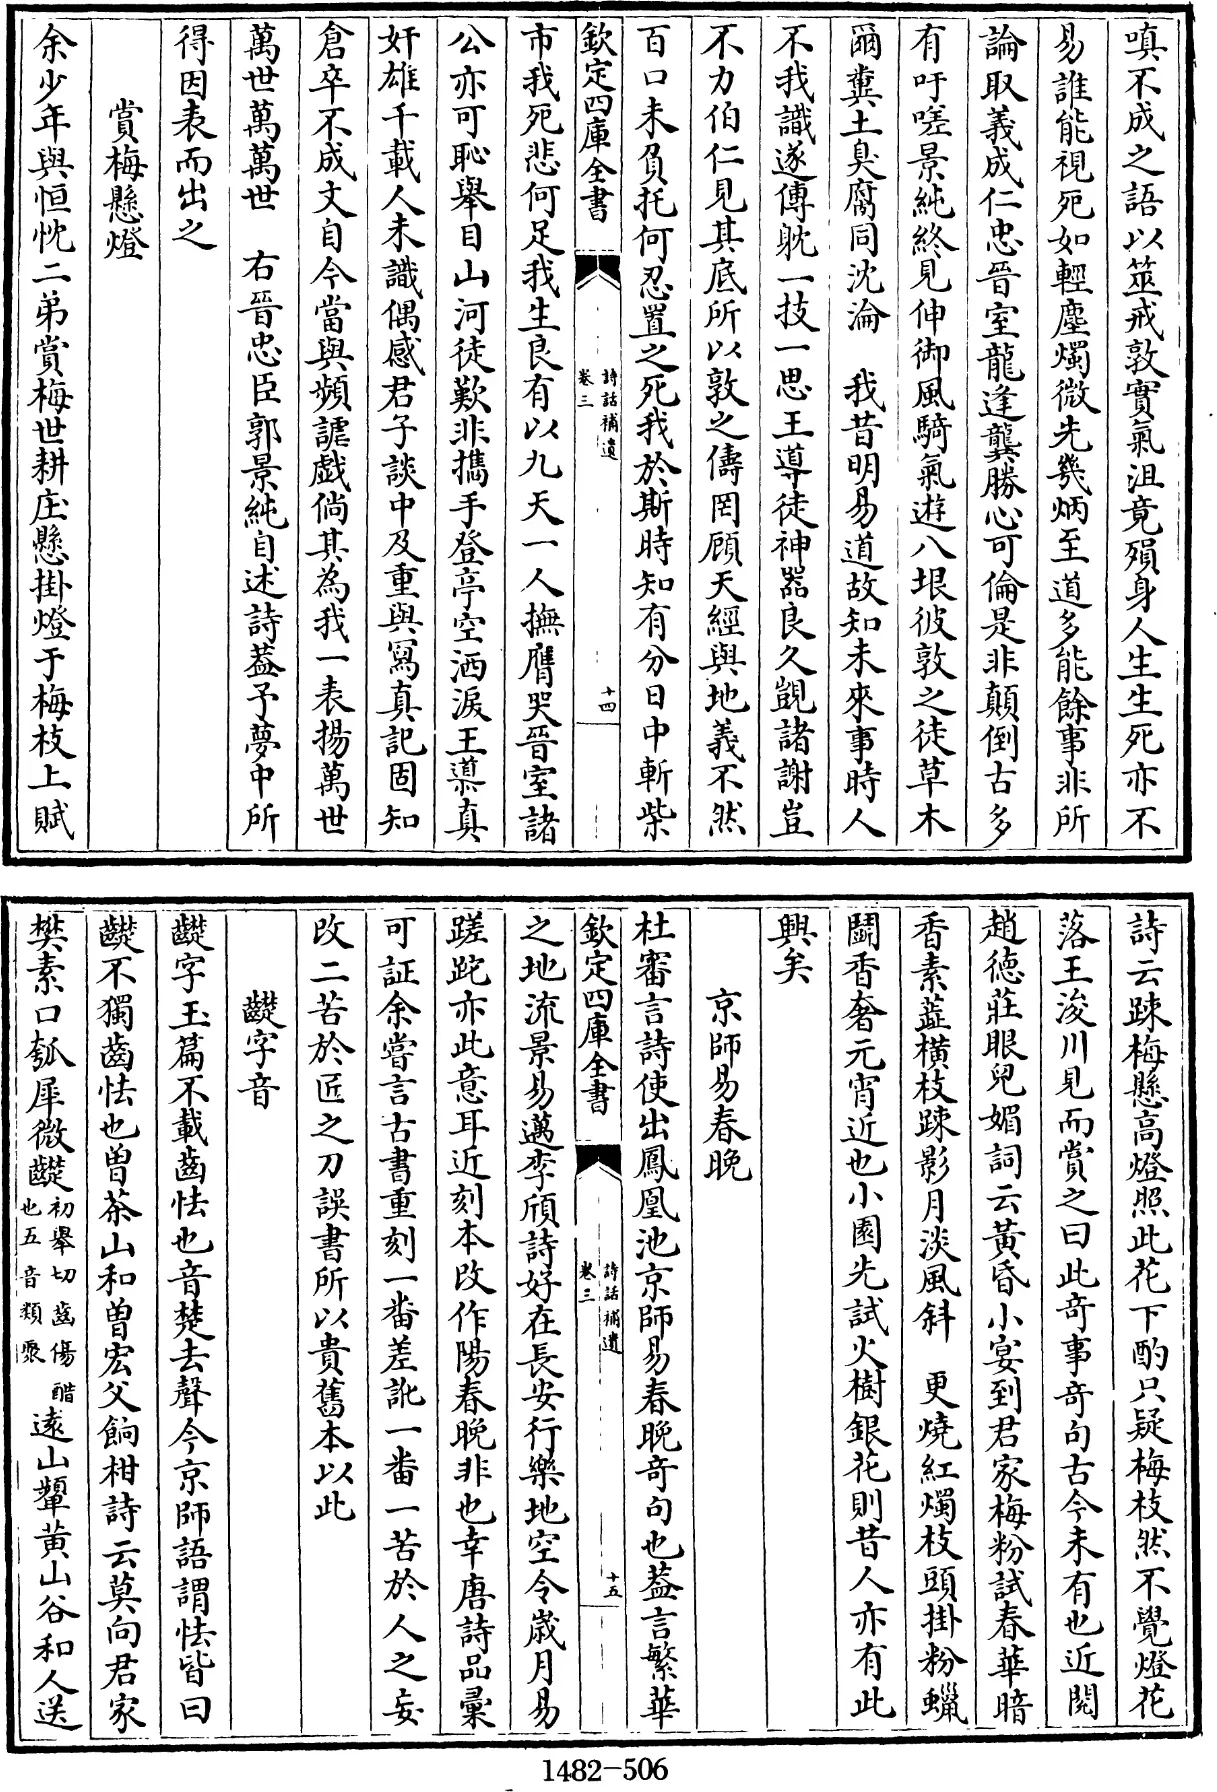 嗔不成之語以筮戒敦實氣沮竟殞身人生生死亦不
易誰能視死如輕塵燭微先幾炳至道多能餘事非所
論取義成仁忠晉室龍逢龔勝心可倫是非顛倒古多
有吁嗟景純終見伸御風騎氣遊八垠彼敦之徒草木
爾糞土臭腐同沈淪　我昔明易道故知未來事時人
不我識遂傳躭一技一思王導徒神器良久覬諸謝豈
不力伯仁見其底所以敦之儔罔顧天經與地義不然
百口未負托何忍置之死我於斯時知有分日中斬柴
欽定四庫全書
詩話補遺
卷三
十四
市我死悲何足我生良有以九天一人撫膺哭晉室諸
公亦可恥舉目山河徒歎非攜手登亭空洒淚王導真
奸雄千載人未識偶感君子談中及重與寫真記固知
倉卒不成文自今當與頻謔戲倘其為我一表揚萬世
萬世萬萬世　右晉忠臣郭景純自述詩蓋予夢中所
得因表而出之
賞梅懸燈
余少年與恒忱二弟賞梅世耕庄懸掛燈于梅枝上賦
詩云踈梅懸高燈照此花下酌只疑梅枝然不覺燈花
落王浚川見而賞之曰此奇事奇句古今未有也近閱
趙德莊眼兒媚詞云黃昏小宴到君家梅粉試春華暗
香素蘂橫枝踈影月淡風斜　更燒紅燭枝頭掛粉蠟
鬪香奢元宵近也小園先試火樹銀花則昔人亦有此
興矣
京師易春晚
杜審言詩使出鳳凰池京師易春晚奇句也蓋言繁華
欽定四庫全書
詩話補遺
卷三
十五
之地流景易邁李頎詩好在長安行樂地空令歲月易
蹉跎亦此意耳近刻本改作陽春晚非也幸唐詩品彙
可証余嘗言古書重刻一番差訛一番一苦於人之妄
改二苦於匠之刀誤書所以貴舊本以此
齼字音
齼字玉篇不載齒怯也音楚去聲今京師語謂怯皆曰
齼不獨齒怯也曾茶山和曾宏父餉柑詩云莫向君家
樊素口瓠犀微齼初舉切齒傷醋也五音類聚遠山顰黃山谷和人送
1482-506